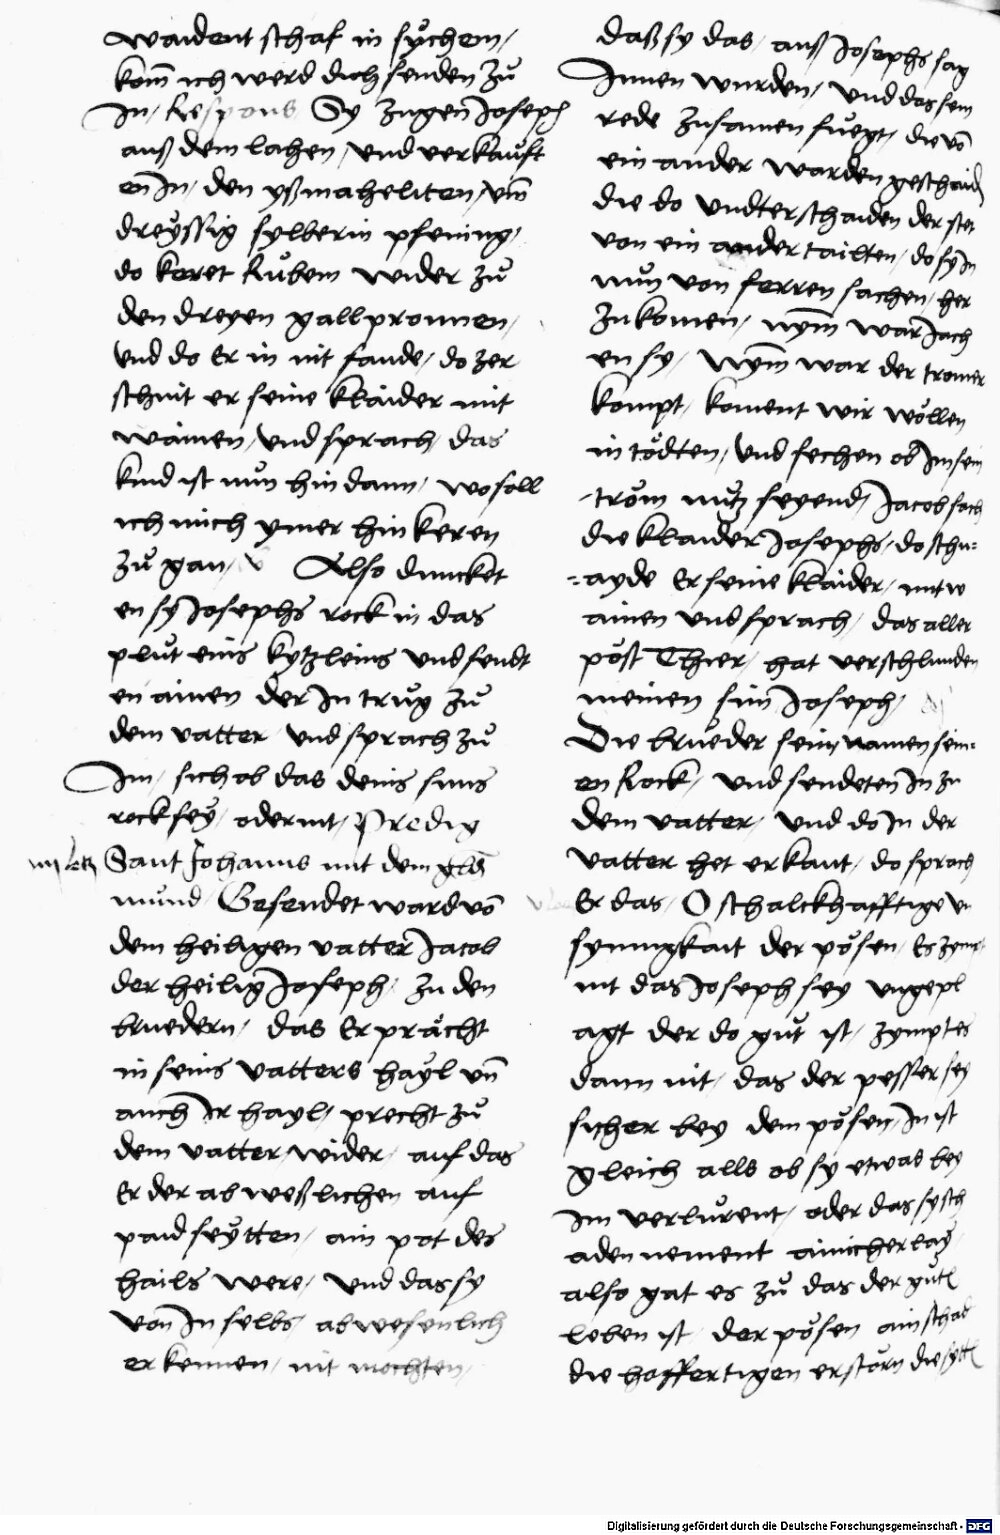 waident schaf in sÿchem,
kom̄ ich werd dich senden zů
In, Respons Sy zugen Joseph
auß dem lahen, und verkaŭft
en In, den yßmaheliten, um̄
dreÿssig sylberin pfening,
do keret Rŭbem wider zů
den dreyen gallpronnen,
Und do Er in nit fande, do zer
schnit er seine klaider mit
wainen, und sprach, das
kind ist nŭn hin dann, wo soll
ich mich ymer hin keren
zů gan, Also duncket
en sÿ Josephs rock in das
plŭt eins kytzleins und sendt
en ainen der In trŭg zů
dem vatter und sprach zů
Im, sich ob das deins suns
rock seÿ, oder nit, Predig
Sant Johanns mit dem
mund, Gesendet ward vō
dem heiligen vatter Jacob
der heilig Joseph, zu den
bruedern, das Er prächt
in seins vatters haÿl un̄
auch Ir hayl, precht zů
dem vatter, wider, auf das
Er der abweßlichen auf
paid seÿtten, ain pot des
hails were, und das sy
von In selbs abwesenlich
erkennen, nit mochten,
daß sy das, auß Josephs sag
Innen wurden, und das sein
rede zusamen fŭegt, die vō
ein ander warden geschaid
die do underschaiden der stet
von ein ander tailten, do sy In
nŭn von ferren sachen, her
zu komen, nym̄ war Jach
en sy, Nym̄ war der tromer
kompt, koment wir wöllen
in tödten, und sechen ob Im sein
trŏm nŭtz seyend, Jacob sach
die klaider Josephs, do schn=
=ayde Er seine klaider, mit w
ainen und sprach, das aller
pöst Thier, hat verschlunden
meinen sun Joseph,
Die brueder sein, namen sein=
en Rock, und sendeten In zu
dem vatter, und do In der
vatter het erkant, do sprach
Er das, O schalckhafftige un
synnigkait der pösen, Es zympt
nit das Joseph sey ungepl
agt der do gŭt ist, zympt es
dann nit, das der pesser sey
sicher bey dem pösen, In ist
gleich alls ob sy etwas bey
Im verlŭrent, oder das sy sch
aden nement ainicherlay,
also gat es zů das der gŭtē
leben ist, der pösen ain schad
die hoffertigen erstörn die